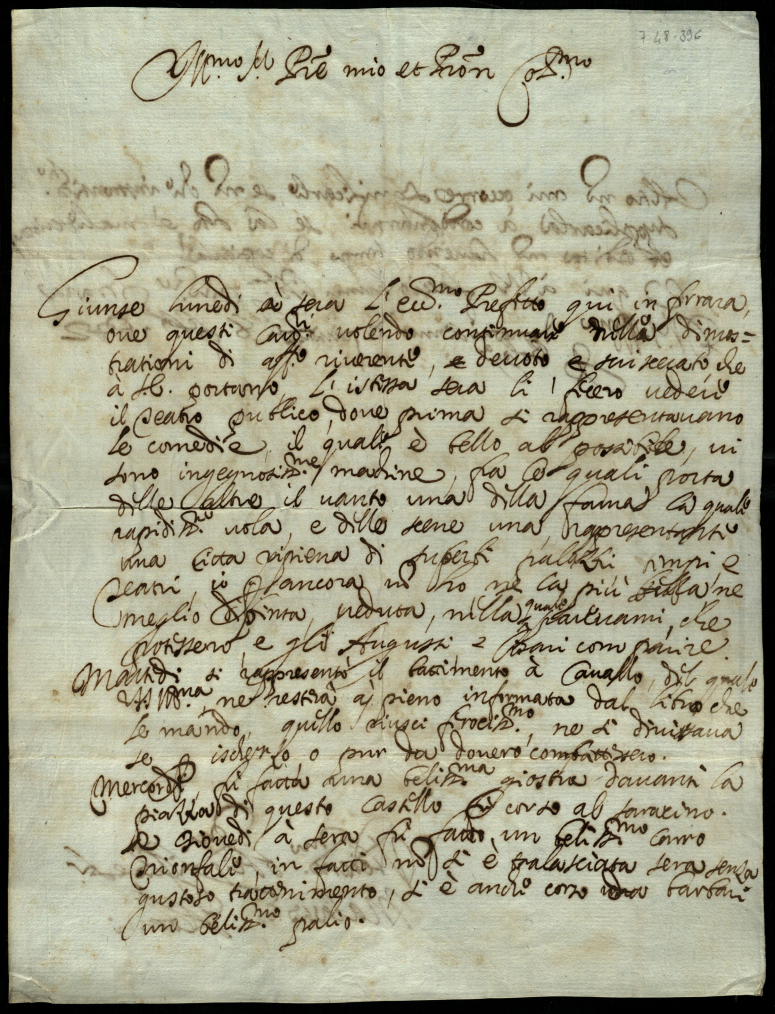 7-48-396
Ill.mo S.r Prõe mio et Prõn
Giunse lunedi à sera l'ecc.mo Prefetto qui in ferrara,
oue questi Cau.ri uolendo continuare nelle dimos=
trationi di aff.o riuerente, e deuoto e suiscerato che
à portano l'istessa sera li fecero uedere
il Teatro publico, doue prima si rappresentauano
le comedie, il quale è bello al possibile, ui
sono ingegnosiss.me machine, fra le quali porta
delle altre il uanto una della fama la quale
rapidiss.e uola, e delle scene una rappresentante
una Citta ripiena di superbi palazzi tempi e
Teatri, io ancora nõ hò ne la più bella ne
meglio dipinta, ueduta, nella quale pareuami, che
potessero, e gli Augusti e Cesari comparire.
Martedi si rappresentò il batimento à Cauallo, del quale
V.S. Ill.ma, ne resterà à pieno informata dal libro che
le mando, quello riusci ferociss.mo, ne si diuisaua
se p ischerzo, o pur da douero combattessero.
Mercordi, fù fatta una beliss.ma giostra dauanti la
piazza di questo Castello e corso al saracino.
e Giouedi à sera fù fatto un beliss.mo carro
Trionfale, in facti nõ si è tralasciata sera senza
gustoso tratenimento, si è anche corso da barbari
un beliss.mo palio.